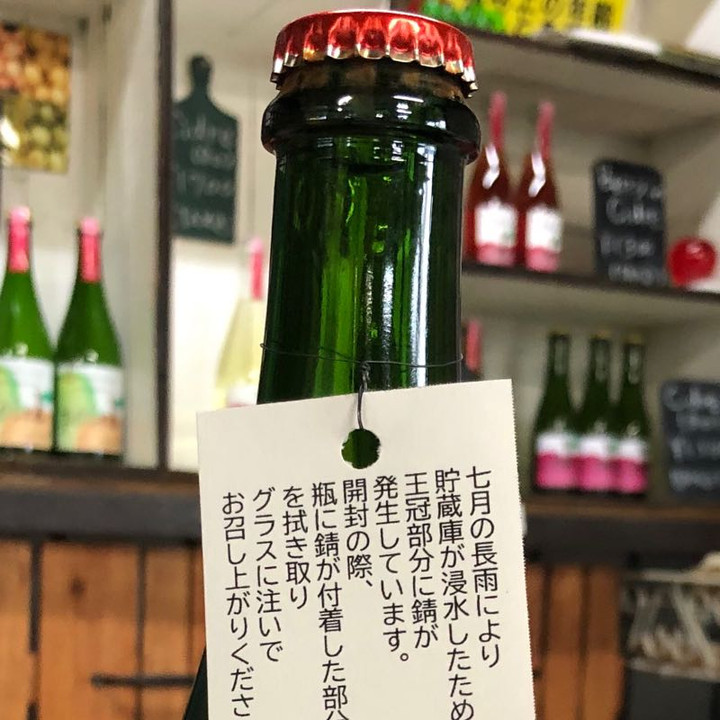 七月の長雨により
貯蔵庫が浸水したため
王冠部分に錆が
発生しています。
開封の際、
瓶に錆が付着した部分
を拭き取り
グラスに注いで
お召し上がりくださ